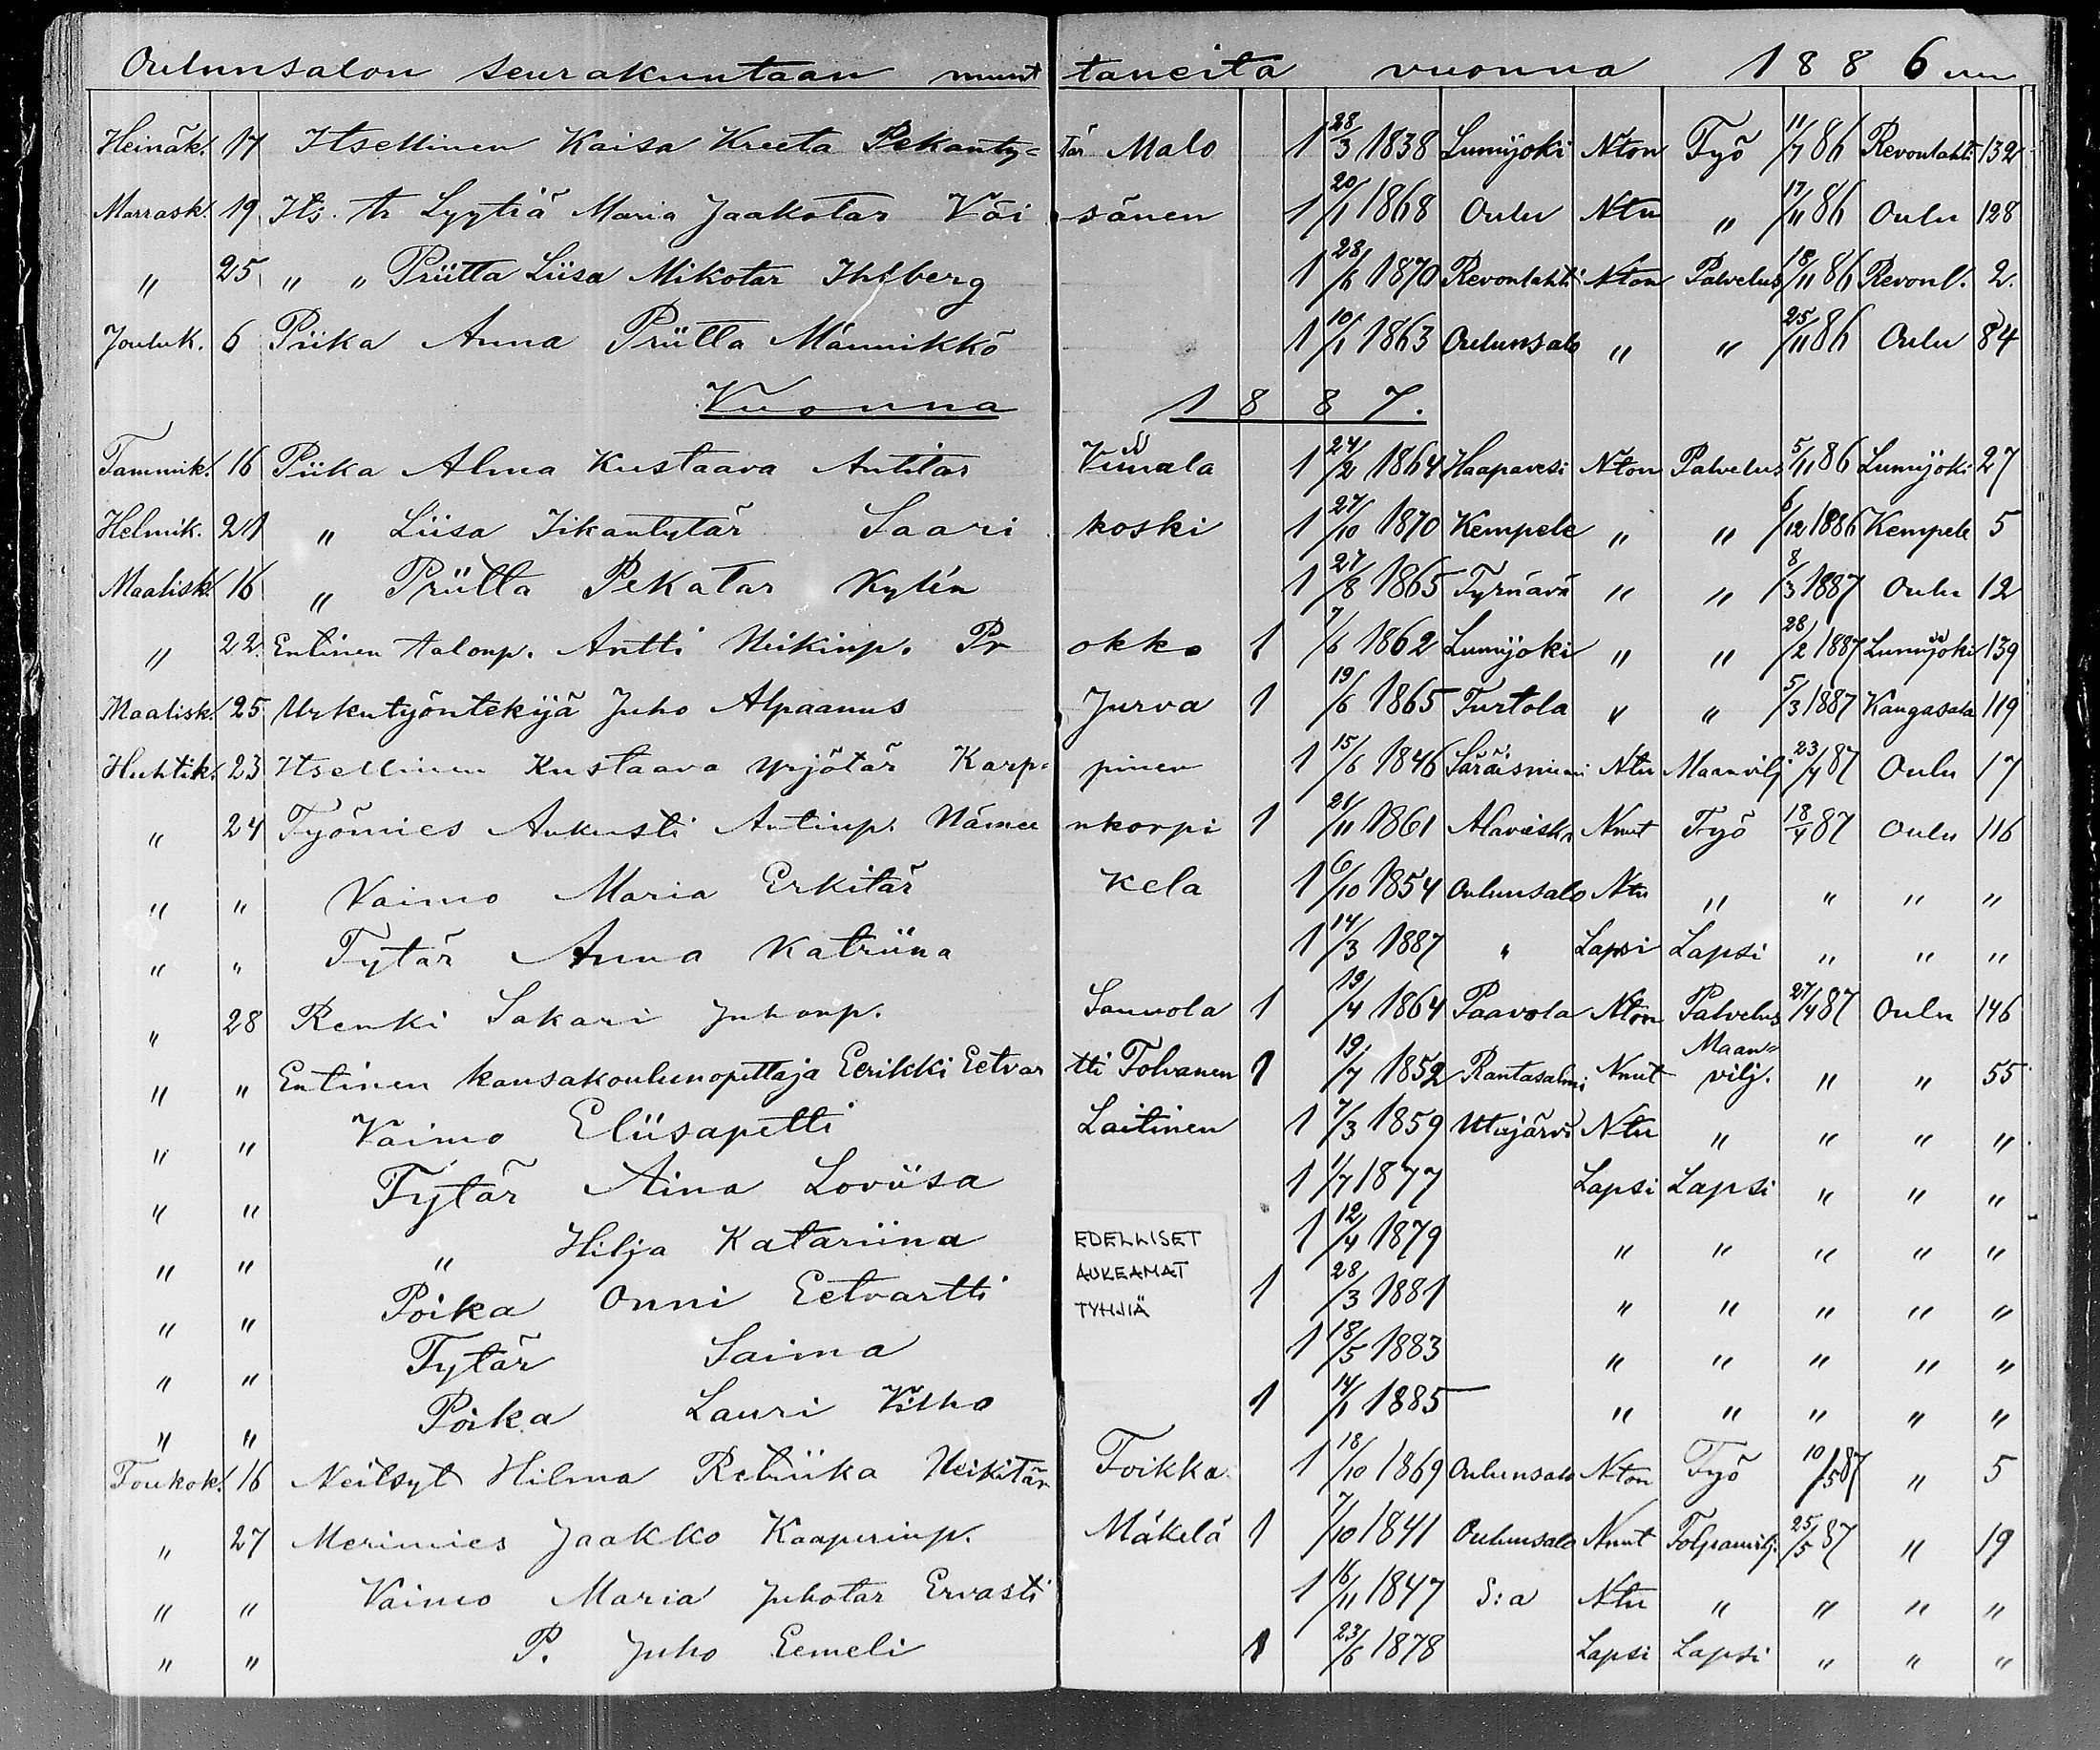 Oulunsalon seurakuntaan muut taneita vuonna 1886
Heinäk. 17 Itsellinen Kaisa Kreeta Pekanty= tär Malo 1 28/3 1838 Lumijoki Nton Työ 11/7 86 Revonlahti 132
Marrask. 19 Its. tr Lyytiä Maria Jaakotar Väi sänen 1 20/1 1868 Oulu Ntu " 17/11 86 Oulu 128
" 25 " " Priitta Liisa Mikotar Ihlberg 1 28/6 1870 Revonlahti Nton Palvelus 18/11 86 Revonl. 2.
Jouluk. 6 Piika Anna Priitta Männikkö 1 10/1 1863 Oulunsalo " " 25/11 86 Oulu 84
Vuonna 1887.
Tammik. 16 Piika Alma Kustaava Antitar Viinala 1 24/2 1864 Haapavesi Nton Palvelus 5/11 86 Lumijoki 27
Helmik. 21 " Liisa Iikantytär Saari koski 1 27/10 1870 Kempele " " 6/12 1886 Kempele 5
Maalisk. 16 " Priitta Pekatar Kylén 1 27/8 1865 Tyrnävä " " 8/3 1887 Oulu 12
" 22 Entinen talonp. Antti Heikinp. Pr okko 1 7/6 1862 Lumijoki " " 28/2 1887 Lumijoki 139
Maalisk. 25 Urkutyöntekijä Juho Alpaanus Jurva 1 19/6 1865 Turtola " " 5/3 1887 Kangasala 119
Huhtik. 23 Itsellinen Kustaava Yrjötär Karp= pinen 1 15/6 1846 Säräisniemi Ntu Maanvilj 23/4 87 Oulu 17
" 24 Työmies Aukusti Antinp. Hämee nkorpi 1 21/11 1861 Alavieska Nmt Työ 18/4 87 Oulu 116
" " Vaimo Maria Erkitär Kela 1 6/10 1854 Oulunsalo Ntu " " " "
" " Tytär Anna Katriina 1 14/3 1887 " Lapsi Lapsi " " "
" 28 Renki Sakari Juhonp. Sauvola 1 19/4 1864 Paavola Nton Palvelus 27/4 87 Oulu 146
" " Entinen kansakoulunopettaja Eerikki Eetvar tti Tolvanen 1 19/7 1852 Rantasalmi Nmt Maan= vilj. " " 55
" " Vaimo Eliisapetti Laitinen 1 7/3 1859 Utajärvi Ntu " " " "
" " Tytär Aina Loviisa 1 1/7 1877 Lapsi Lapsi " " "
" " " Hilja Katariina 1 12/4 1879 " " " " "
EDELLISET
AUKEAMAT
TYHJIÄ
" " Poika Onni Eetvartti 1 28/3 1881 " " " " "
" " Tytär Saima 1 18/5 1883 " " " " "
" " Poika Lauri Vilho 1 14/1 1885 " " " " "
Toukok. 16 Neitsyt Hilma Retriika Heikitär Toikka 1 18/10 1869 Oulunsalo Nton Työ 10/5 87 " 5
" 27 Merimies Jaakko Kaaperinp. Mäkelä 1 7/10 1841 Oulunsalo Nmt 25/5 87 " 19
" " Vaimo Maria Juhotar Ervasti 1 16/11 1847 S:a Ntu " " " "
" " P. Juho Eemeli 1 23/6 1878 Lapsi Lapsi " " "